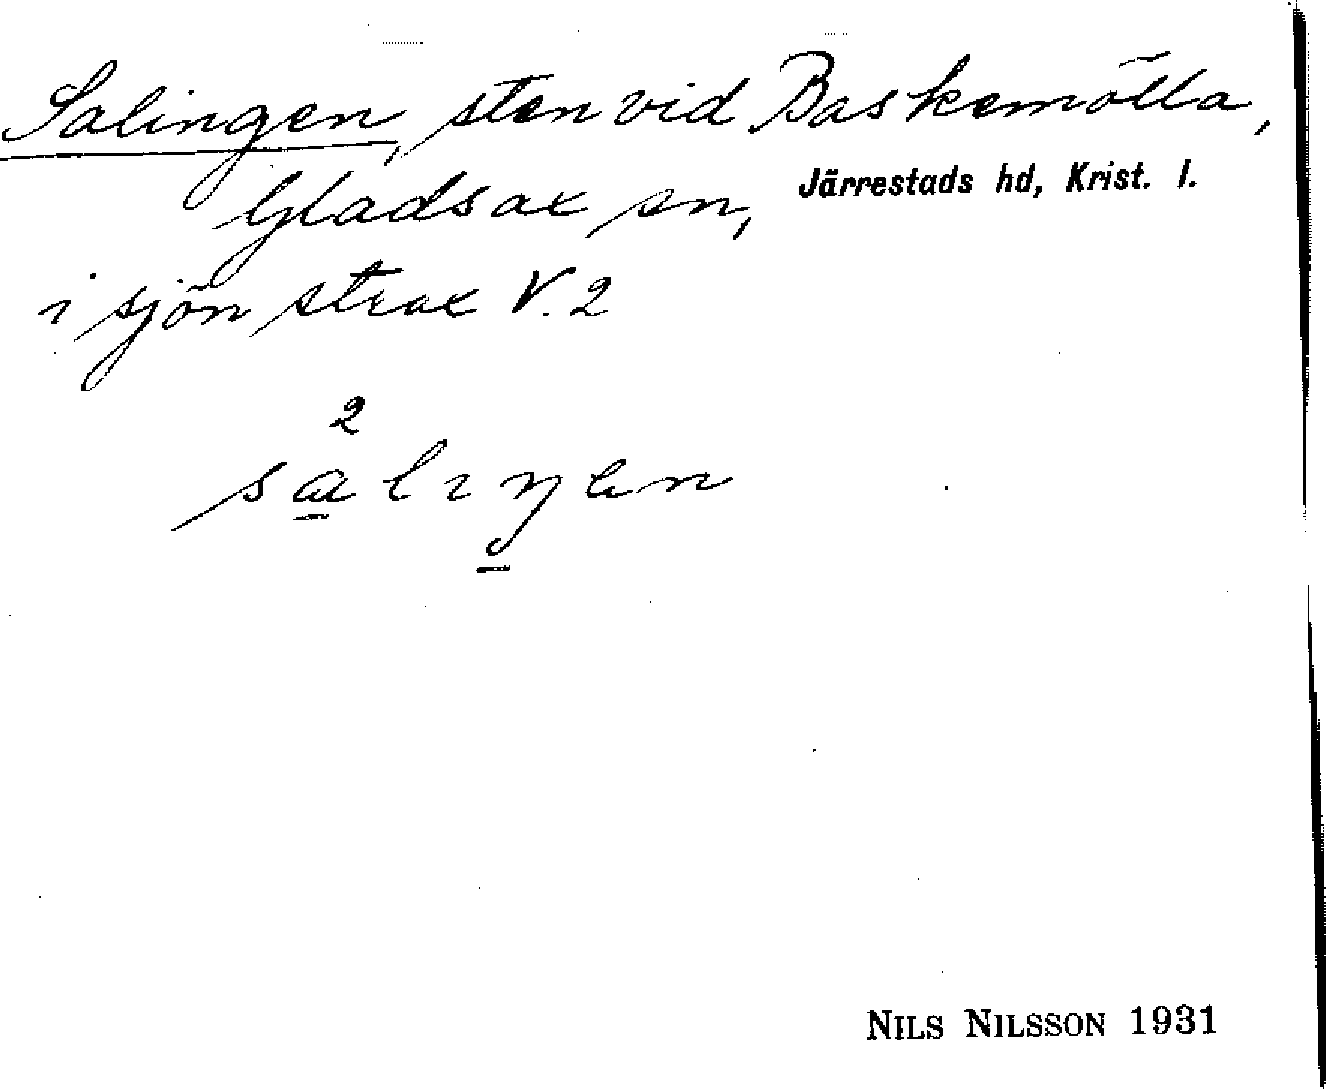 Salingen, sten vid Baskemölla,
Gladsax sn, Järrestads hd, Krist. l.
i sjön strax V. 2
NILS NILSSON 1931